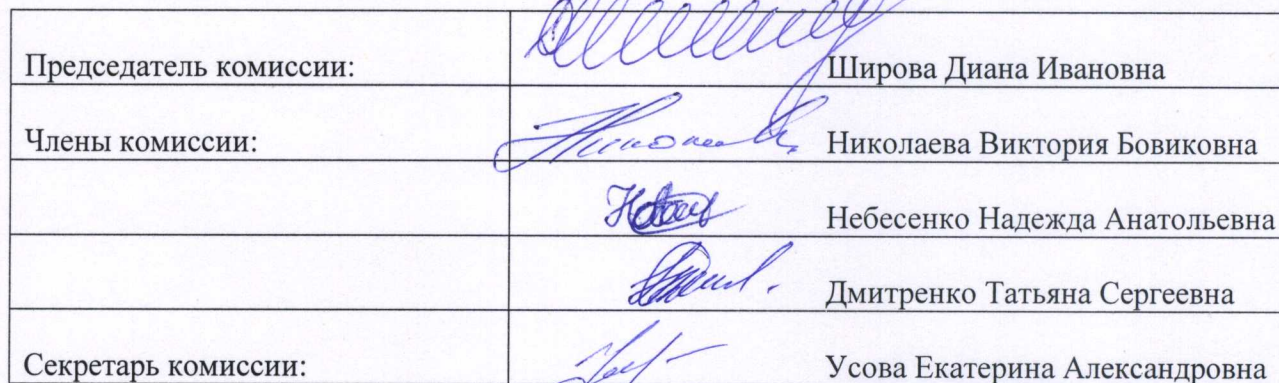 Председатель комиссии: Широва Диана Ивановна
Члены комиссии: Николаева Виктория Бовиковна
Небесенко Надежда Анатольевна
Дмитренко Татьяна Сергеевна
Секретарь комиссии: Усова Екатерина Александровна